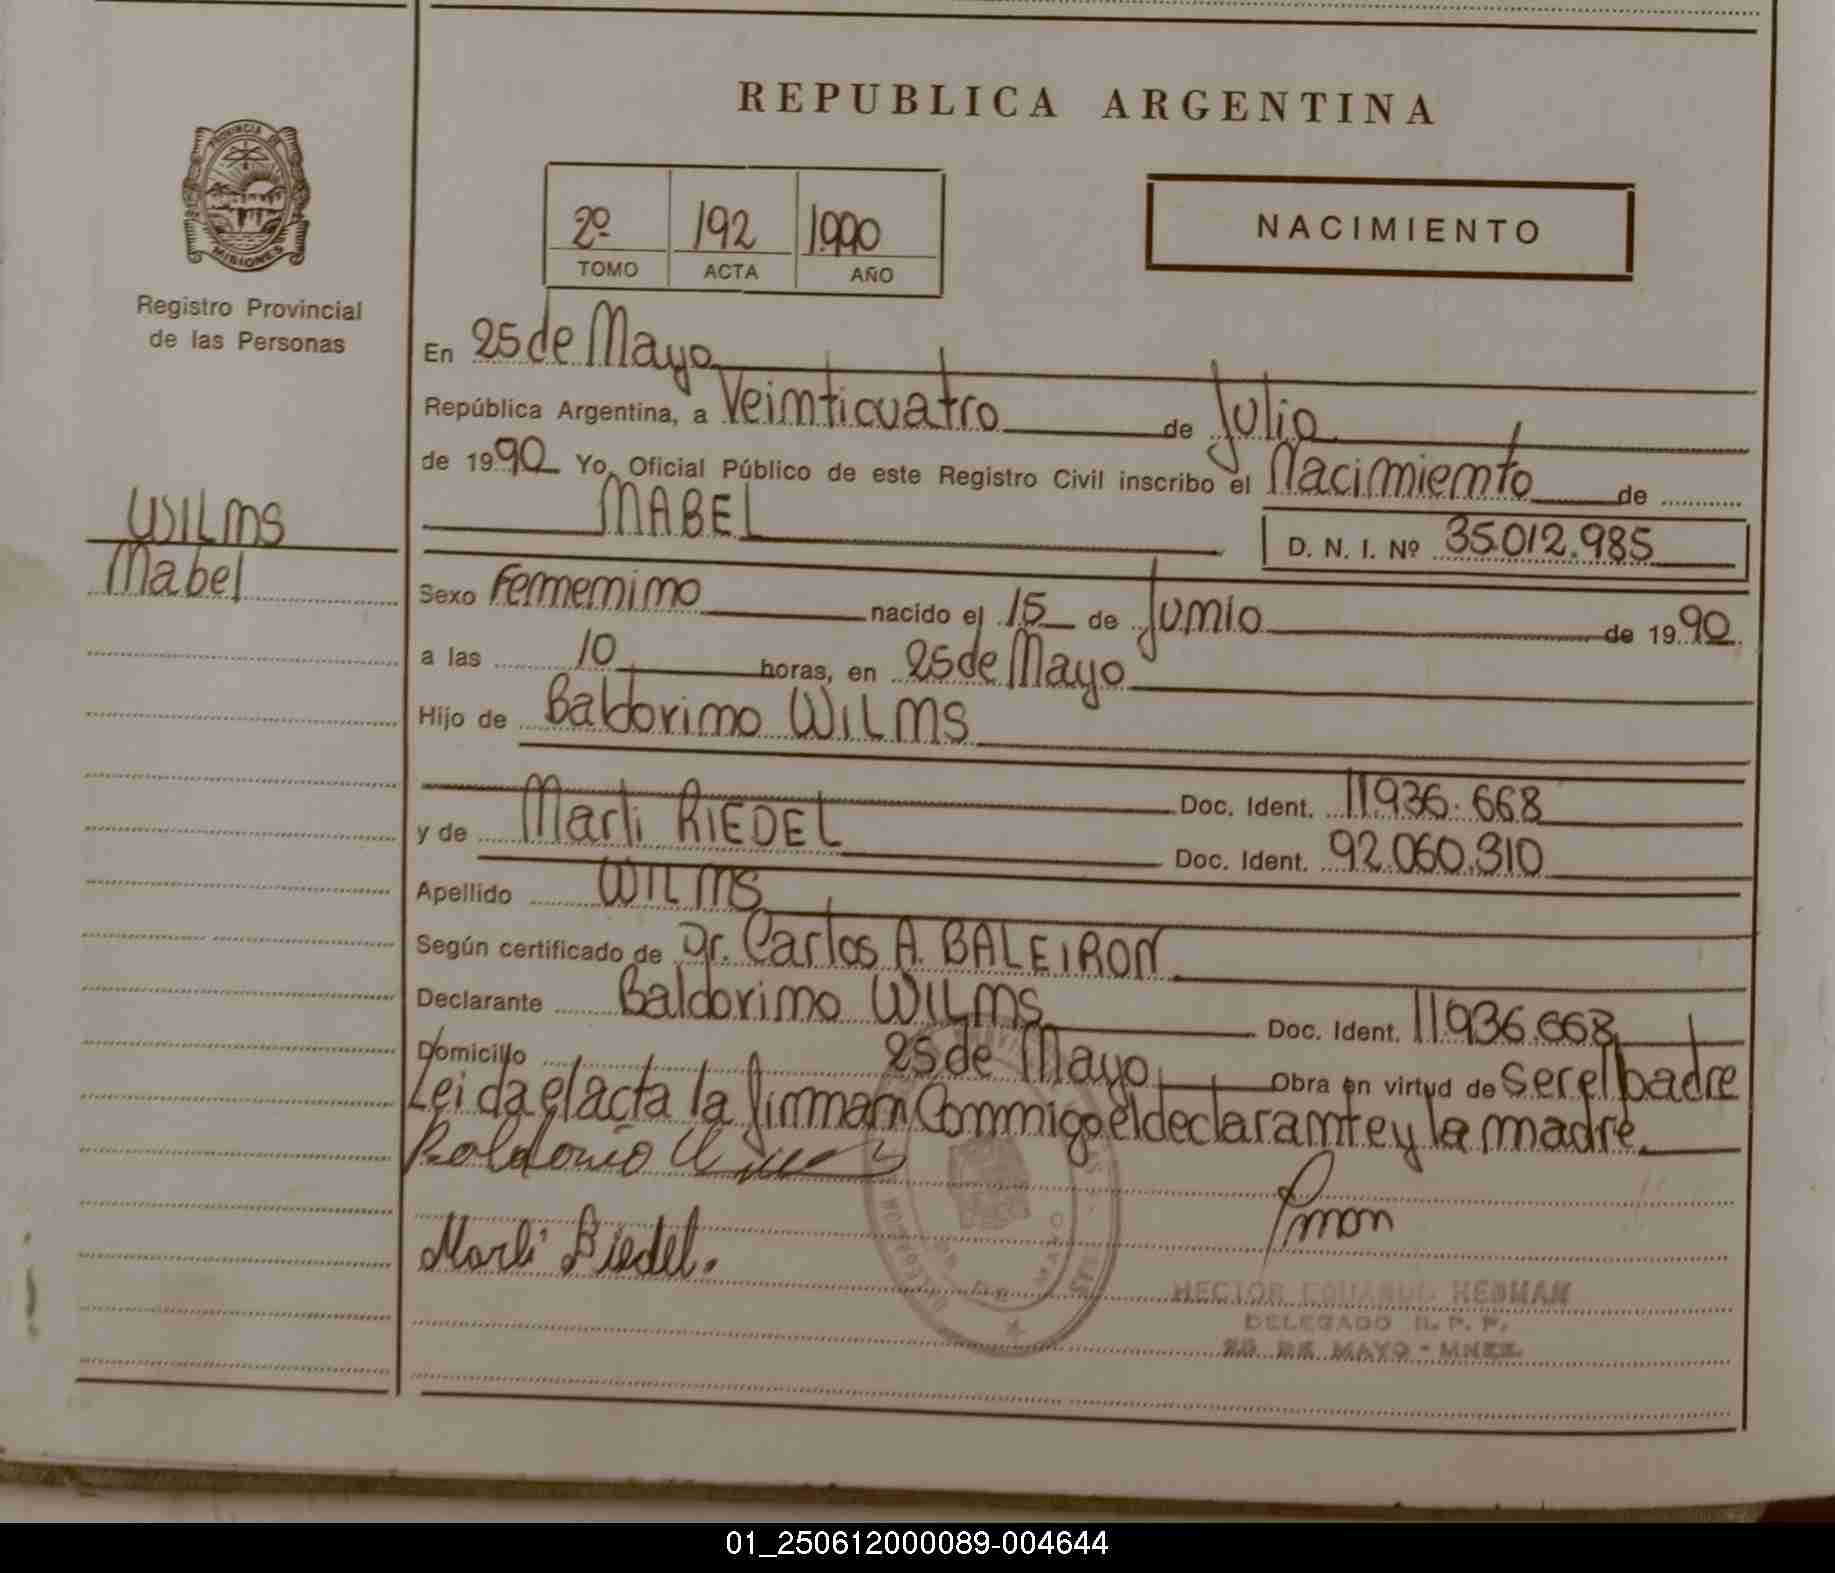 REPUBLICA ARGENTINA
PROVINCIA DE
MISIONES
Registro Provincial
de las Personas
2º 192 1990
TOMO ACTA AÑO
NACIMIENTO
En 25 de Mayo
República Argentina, a Veinticuatro de Julio
de 1990 Yo, Oficial Público de este Registro Civil inscribo el Nacimiento de
MABEL
D. N. I. Nº 35.012.985
WILMS
Mabel
Sexo Femenino nacido el 15 de Junio de 1990
a las 10 horas, en 25 de Mayo
Hijo de Baldorimo WILMS
Doc. Ident. 11.936.668
y de Marli RIEDEL Doc. Ident. 92.060.310
Apellido WILMS
Según certificado de Dr. Carlos A. BALEIRON
Declarante Baldorimo WILMS Doc. Ident. 11.936.668
Domicilio 25 de Mayo Obra en virtud de ser el padre
Leida el acta la firman Conmigo el declarante y la madre
Marli Riedel.
HECTOR EDUARDO HEDMAN
DELEGADO R. P. P.
25 DE MAYO - MNES.
01_250612000089-004644